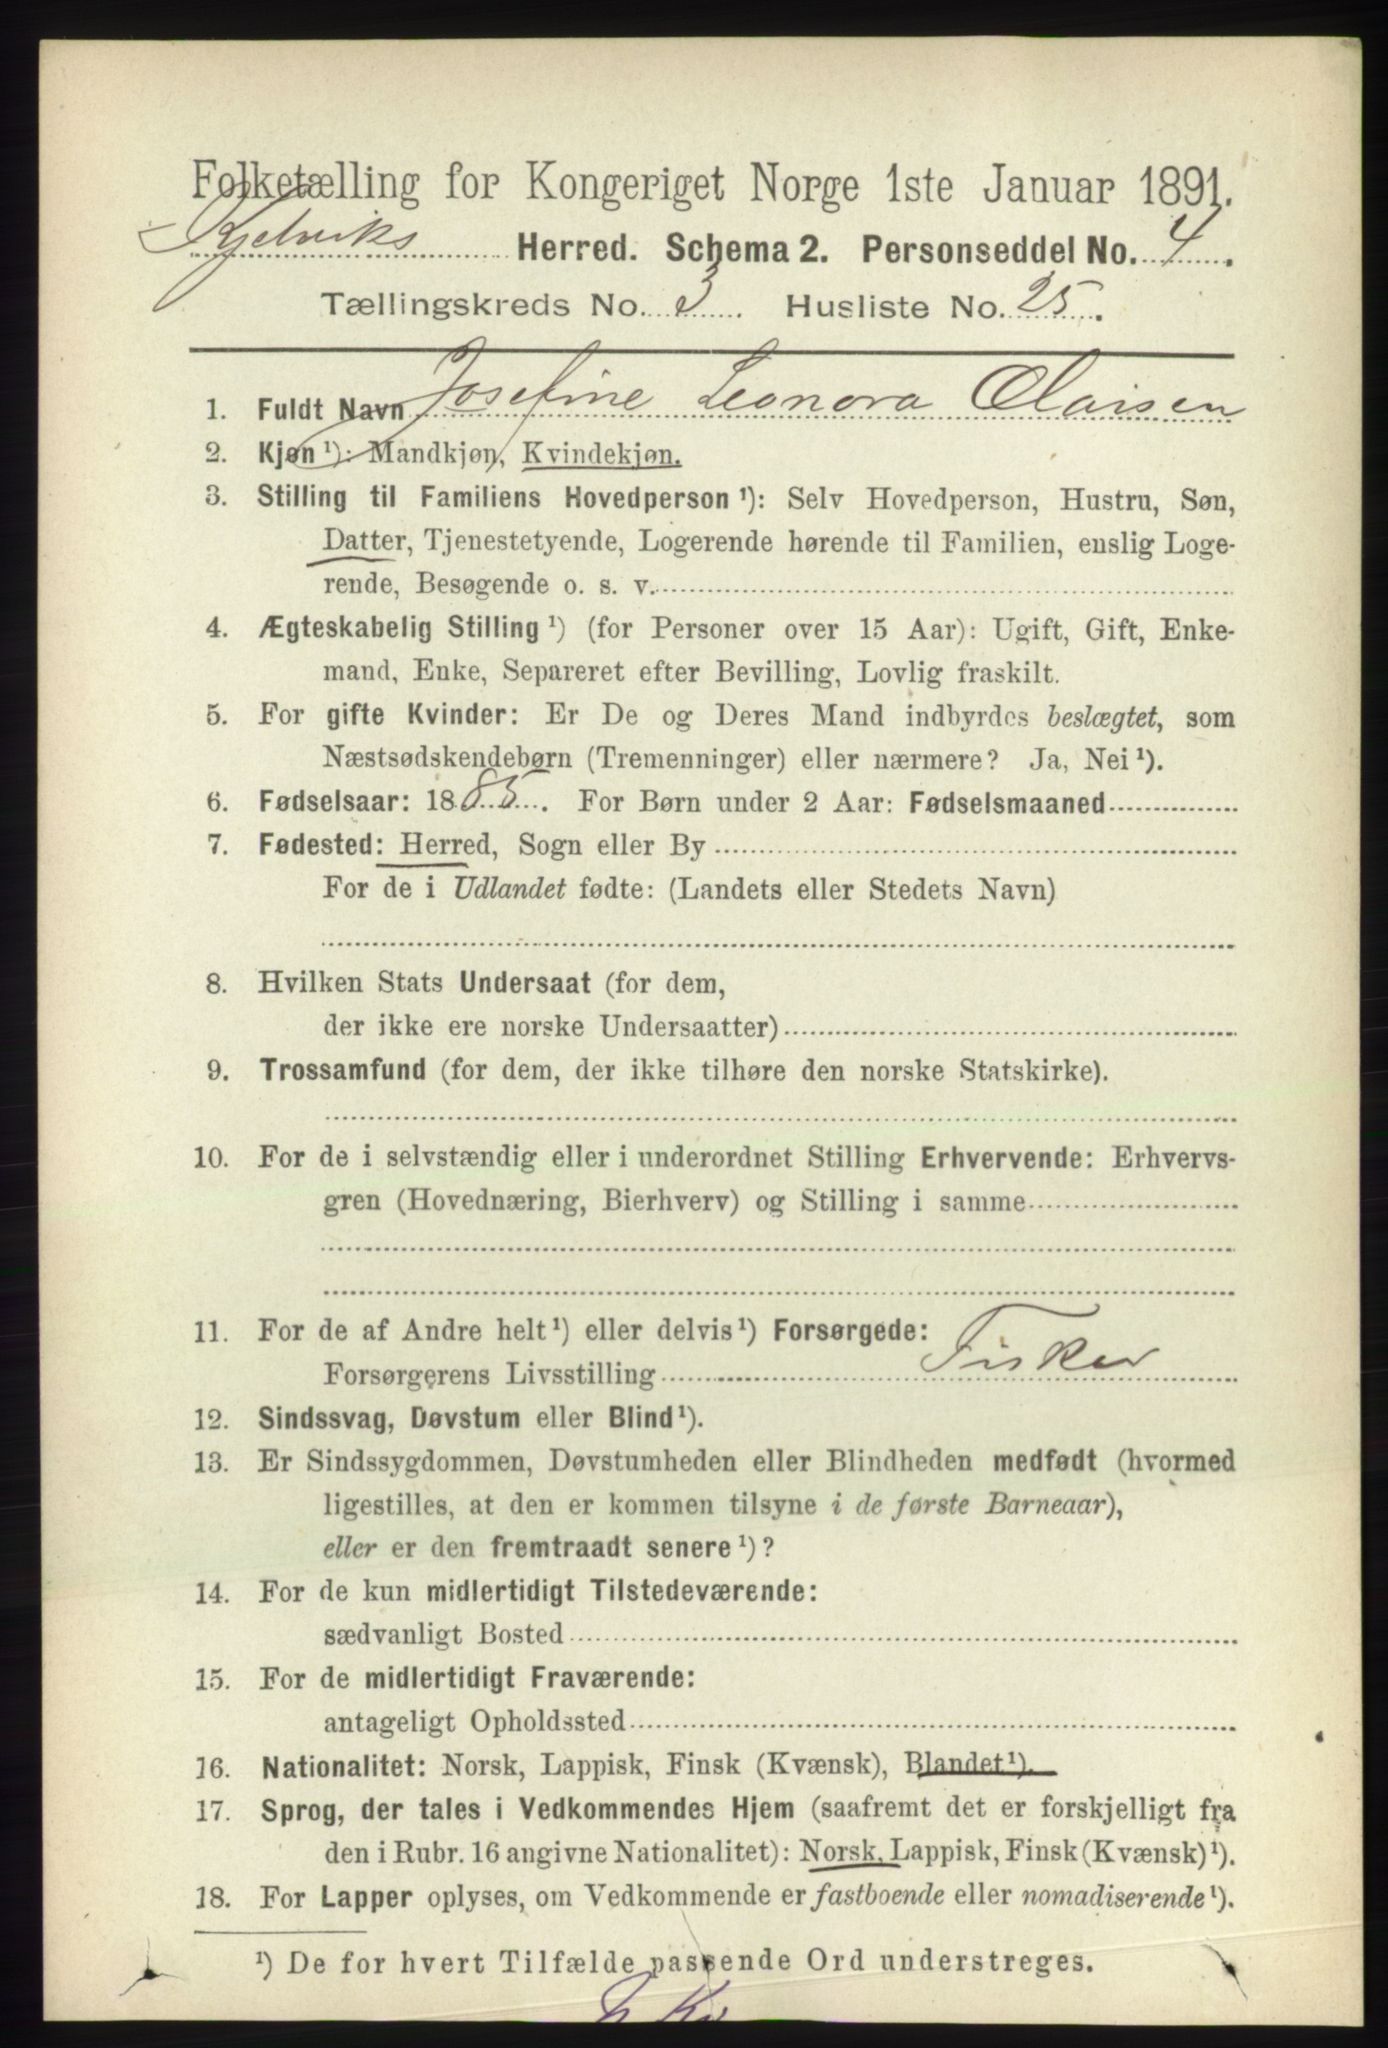 Folketælling for Kongeriget Norge 1ste Januar 1891.
Kjelviks Herred. Schema 2. Personseddel No. 4.
Tællingskreds No. 3. Husliste No. 25.
1. Fuldt Navn Josefine Leonora Olaisen
2. Kjøn¹): Mandkjøn, Kvindekjøn.
3. Stilling til Familiens Hovedperson¹): Selv Hovedperson, Hustru, Søn,
Datter, Tjenestetyende, Logerende hørende til Familien, enslig Loge-
rende, Besøgende o. s. v.
4. Ægteskabelig Stilling¹) (for Personer over 15 Aar): Ugift, Gift, Enke-
mand, Enke, Separeret efter Bevilling, Lovlig fraskilt.
5. For gifte Kvinder: Er De og Deres Mand indbyrdes beslægtet, som
Næstsødskendebørn (Tremenninger) eller nærmere? Ja, Nei¹).
6. Fødselsaar: 1885. For Børn under 2 Aar: Fødselsmaaned
7. Fødested: Herred, Sogn eller By
For de i Udlandet fødte: (Landets eller Stedets Navn)
8. Hvilken Stats Undersaat (for dem,
der ikke ere norske Undersaatter)
9. Trossamfund (for dem, der ikke tilhøre den norske Statskirke).
10. For de i selvstændig eller i underordnet Stilling Erhvervende: Erhvervs-
gren (Hovednæring, Bierhverv) og Stilling i samme
11. For de af Andre helt¹) eller delvis¹) Forsørgede:
Forsørgerens Livsstilling Fisker
12. Sindssvag, Døvstum eller Blind¹).
13. Er Sindssygdommen, Døvstumheden eller Blindheden medfødt (hvormed
ligestilles, at den er kommen tilsyne i de første Barneaar),
eller er den fremtraadt senere¹)?
14. For de kun midlertidigt Tilstedeværende:
sædvanligt Bosted
15. For de midlertidigt Fraværende:
antageligt Opholdssted
16. Nationalitet: Norsk, Lappisk, Finsk (Kvænsk), Blandet¹).
17. Sprog, der tales i Vedkommendes Hjem (saafremt det er forskjelligt fra
den i Rubr. 16 angivne Nationalitet): Norsk, Lappisk, Finsk (Kvænsk)¹).
18. For Lapper oplyses, om Vedkommende er fastboende eller nomadiserende¹).
¹) De for hvert Tilfælde passende Ord understreges.